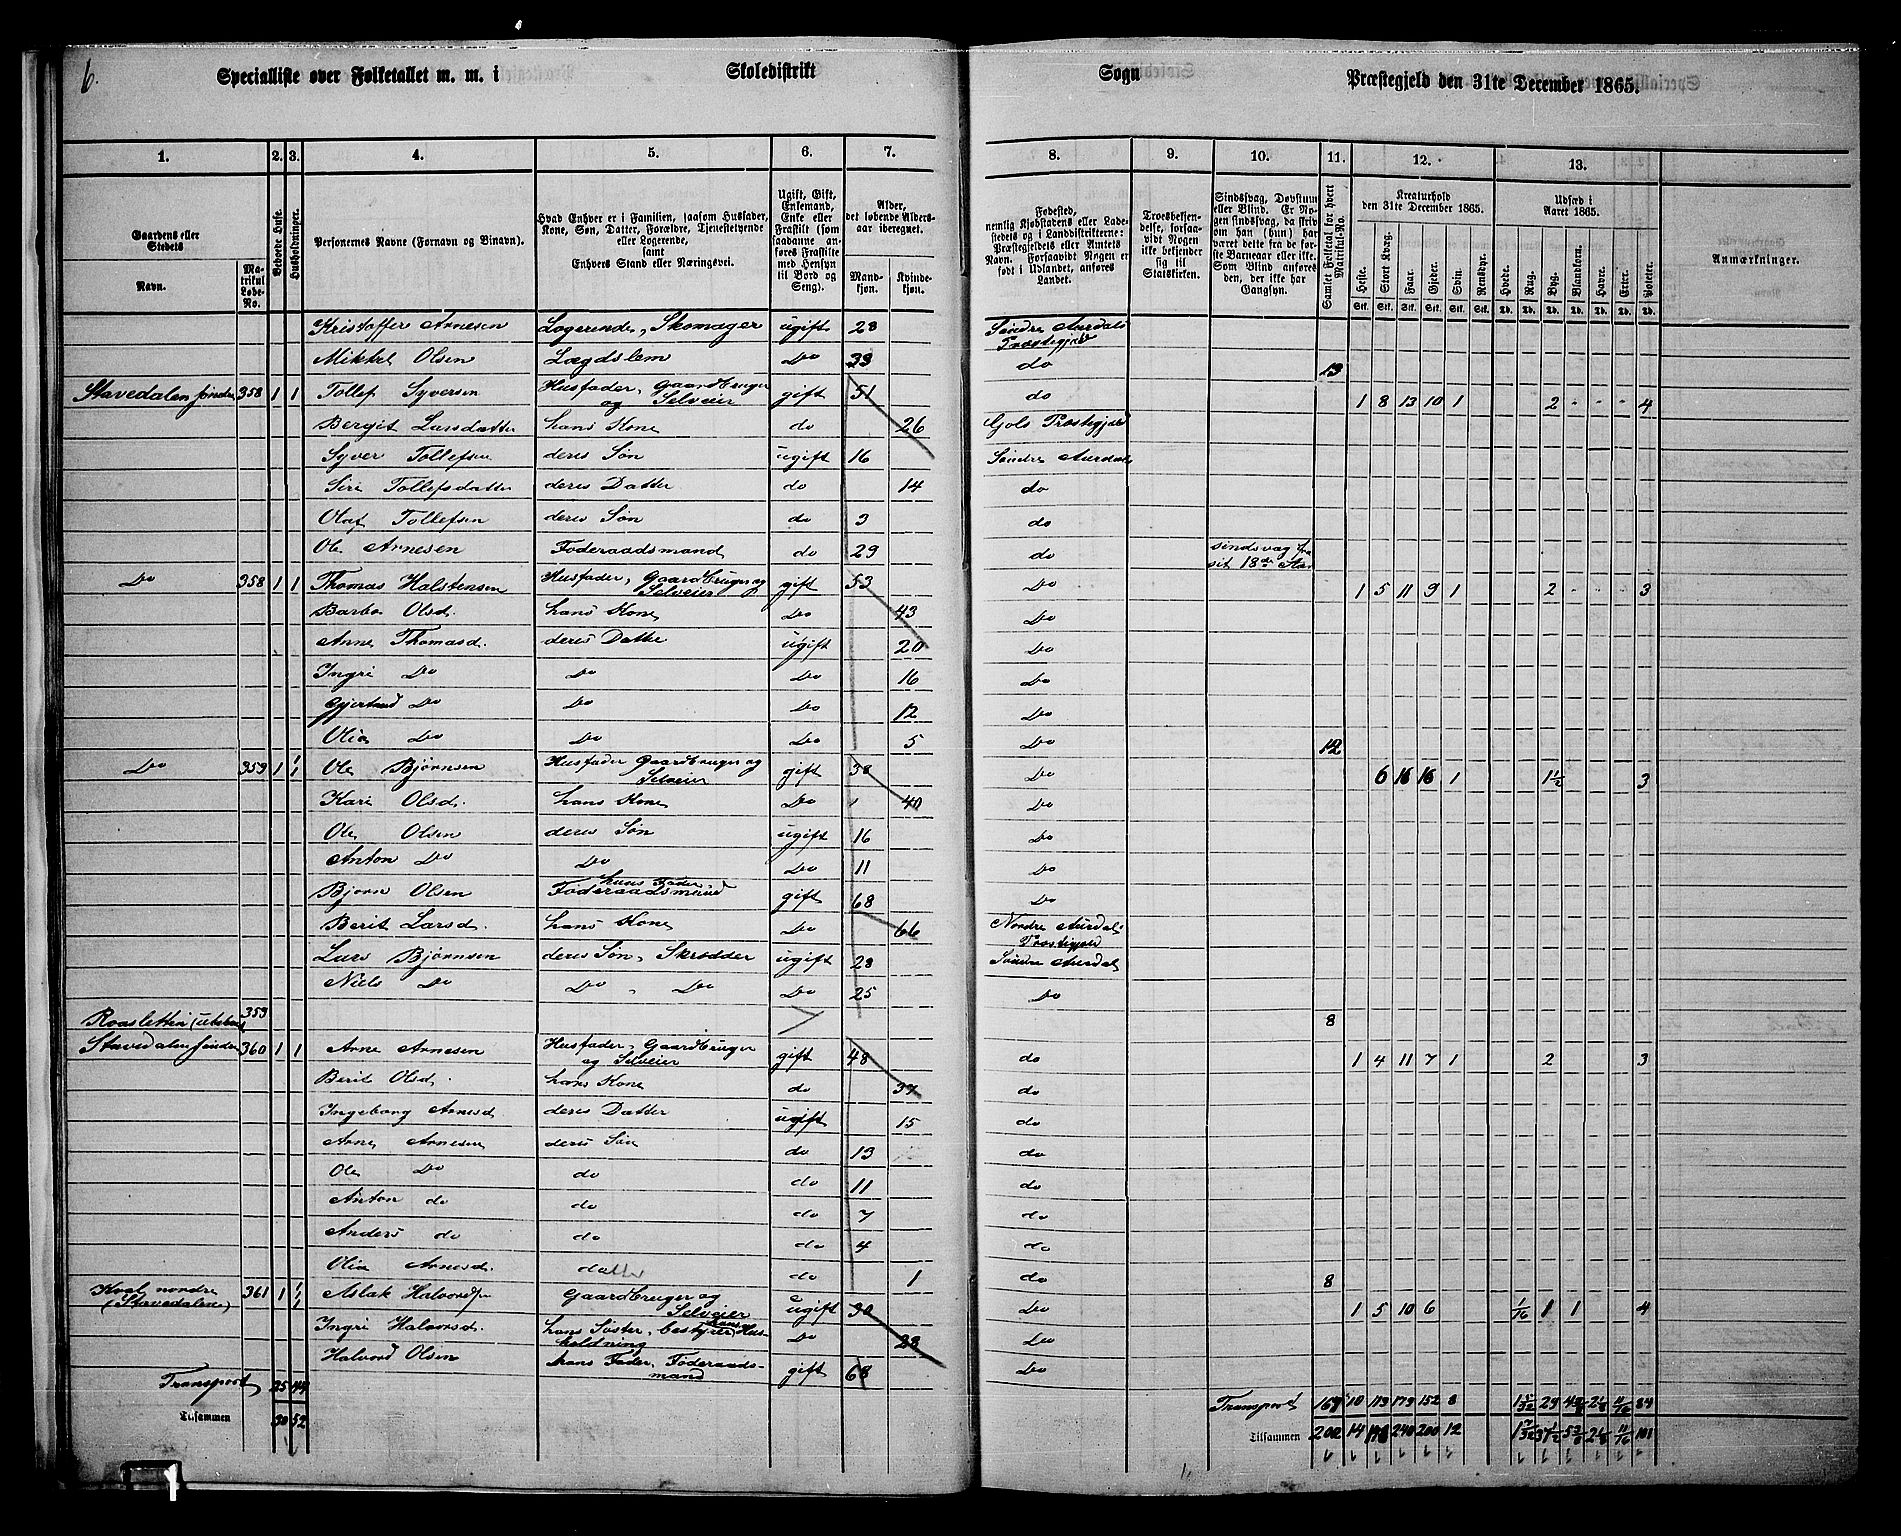 6.
Specialliste over Folketallet m. m. i Skoledistrikt Sogn Præstegjeld den 31te December 1865.
1. 2. 3. 4. 5. 6. 7. 8. 9. 10. 11. 12. 13.
Gaardens eller Stedets Navn. Matrikul Løbe-No. Beboede Huse. Husholdninger. Personernes Navne (Fornavn og Binavn). Hvad Enhver er i Familien, saasom Husfader, Kone, Søn, Datter, Forældre, Tjenestetyende eller Logerende, samt Enhvers Stand eller Næringsvei. Ugift, Gift, Enkemand, Enke eller Fraskilt (som saadanne anføres Fraskilte med Hensyn til Bord og Seng). Alder, det løbende Alders-aar iberegnet. Mandkjøn. Kvindekjøn.
Fødested, nemlig Kjøbstadens eller Ladestedets og i Landdistrikterne: Præstegjeldets eller Amtets Navn. Forsaavidt Nogen er født i Udlandet, anføres Landet. Troesbekjendelse, forsaavidt Nogen ikke bekjender sig til Statskirken. Sindssvag, Døvstum eller Blind. Er Nogen sindssvag, da skrives om han (hun) har været dette fra de første Barneaar eller ikke. Som Blind anføres den, der ikke har Gangsyn. Samlet Folketal for hvert Matrikul-No. Kreaturhold den 31te December 1865. Heste. Stort Kvæg. Faar. Gjeder. Svin. Rensdyr. Udsæd i Aaret 1865. Hvede. Rug. Byg. Blandkorn. Havre. Erter. Poteter. Anmærkninger.
Kristoffer Arnesen Logerende, Skomager ugift 28 Søndre Aurdals Præstegjeld
Mikkel Olsen Lægdslem Do 33 do 13
Stavedalen søndre 358 1 1 Tollef Syversen Husfader, Gaardbruger og Selveier gift 51 do 1 8 13 10 1 2 - - - 4
Bergit Larsdatter hans Kone do 26 Gols Præstegjeld
Syver Tollefsen deres Søn ugift 16 Søndre Aurdal
Siri Tollefsdatter deres Datter do 14 do
Olaf Tollefsen deres Søn do 3 do
Ole Arnesen Føderaadsmand do 29 do sindsvag fra sit 18de Aar
Do 358 1 1 Thomas Halstensen Husfader, Gaardbruger og Selveier gift 53 Do 1 5 11 9 1 2 - - - 3
Barbo Olsd. hans Kone Do 43 Do
Anne Thomasd. deres Datter ugift 20 Do
Ingri Do Do Do 16 Do
Gjertrud Do Do Do 12 Do
Olia Do Do Do 5 Do 12
Do 359 1 1/1 Ole Bjørnsen Husfader Gaardbruger og Selveier gift 38 Do 6 16 16 1 1½ 3
Kari Olsd. hans Kone Do 40 Do
Ole Olsen deres Søn ugift 16 Do
Anton Do Do Do 11 Do
Bjørn Olsen hans Fader Føderaadsmand gift 68 Do
Berit Larsd. hans Kone Do 66 Nordre Aurdals Præstegjeld
Lars Bjørnsen deres Søn, Skrædder ugift 28 Søndre Aurdal
Niels Do Do - Do Do 25 Do
359 8
Stavedalen søndre 360 1 1 Arne Arnesen Husfader, Gaardbruger og Selveier gift 48 do 1 4 11 7 1 2 3
Berit Olsd. hans Kone do 37 do
Ingeborg Arnesd deres Datter ugift 15 do
Arne Arnesen deres Søn do 13 do
Ole Do do do 11 do
Anton do do do 7 do
Anders do do do 4 do
Olia Arnesd. datter do 1 do 8
Kval nordre (Stavedalen) 361 1 1/1 Aslak Halvords. Gaardbruger og Selveier ugift 30 Do 1 5 10 6 1/16 1 1 4
Ingri Halvorsd. hans Søster, bestyrer hans Husholdning Do 28 Do
Halvord Olsen hans Fader, Føderaadsmand gift 68 Do
Transport 25 44 Transport 169 10 179 152 8 29 84
Tilsammen 30 52 Tilsammen 202 14 240 200 12 101